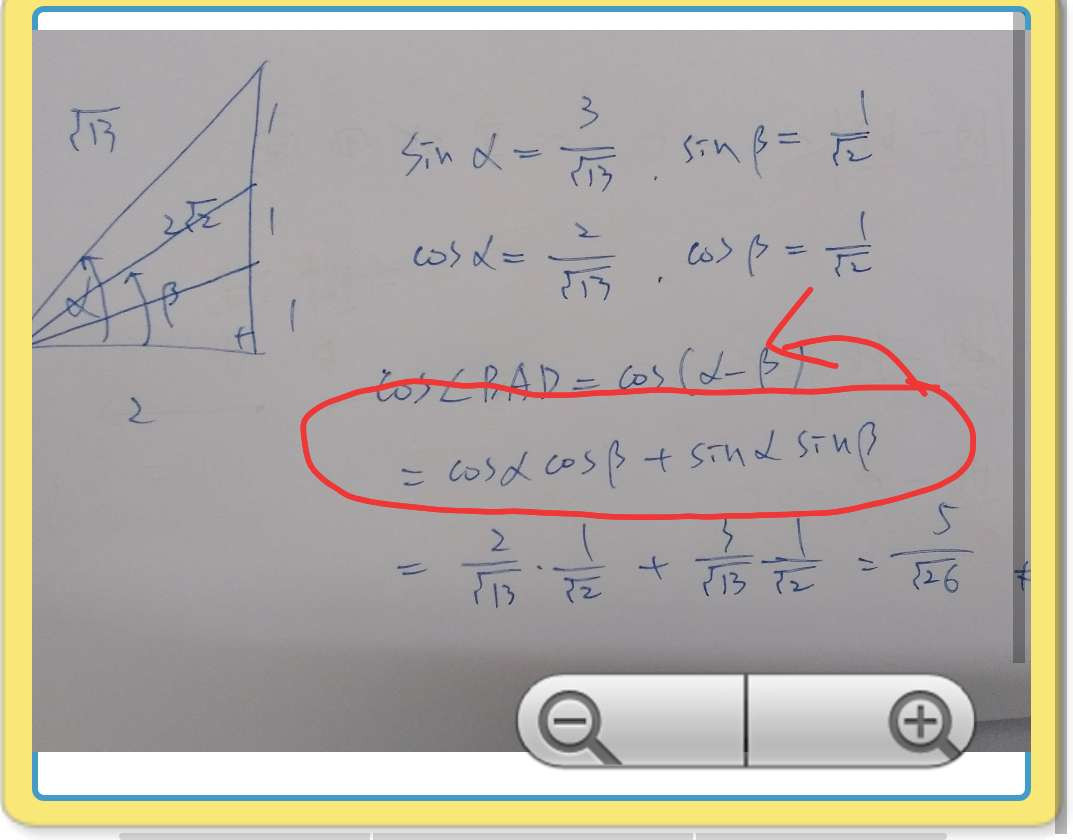 √13
1
sin α = 3/√13 . sin β = 1/√2
2√2
1
cos α = 2/√13 . cos β = 1/√2
α
β
1
cos∠BAD = cos(α-β)
2
= cosα cosβ + sinα sinβ
= 2/√13 · 1/√2 + 3/√13 1/√2 = 5/√26